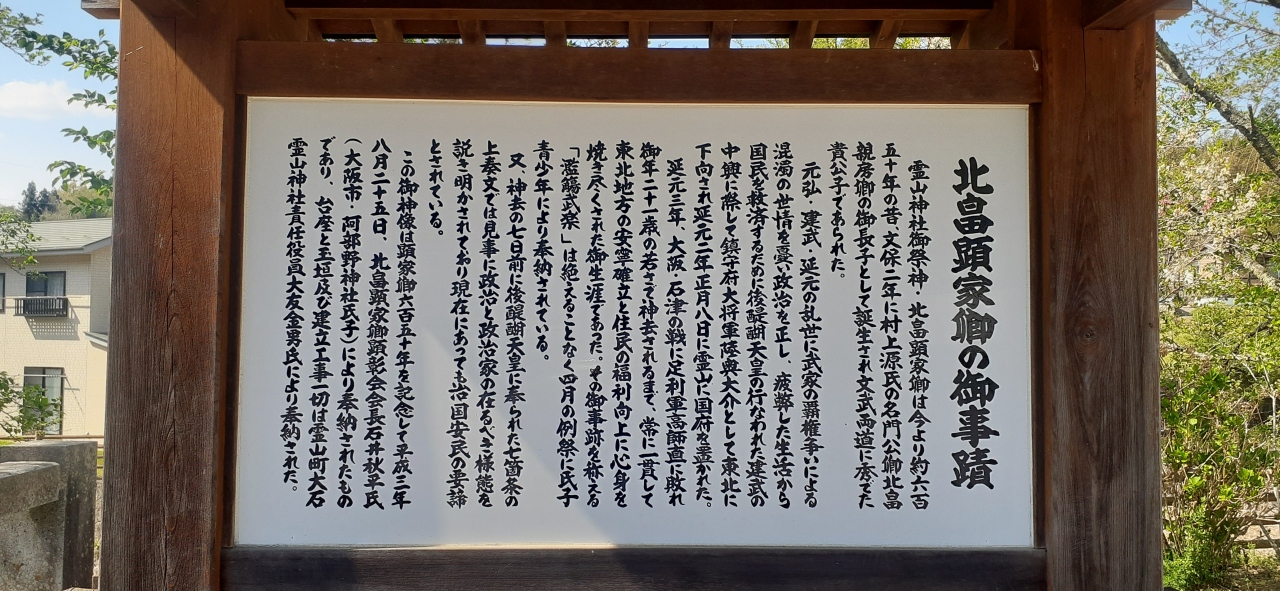 北畠顕家卿の御事蹟
霊山神社御祭神・北畠顕家卿は今より約六百
五十年の昔、文保二年に村上源氏の名門公卿北畠
親房卿の御長子として誕生され文武両道に秀でた
貴公子であられた。
元弘・建武、延元の乱世に武家の覇権争いによる
混濁の世情を憂い政治を正し、疲弊した生活から
国民を救済するために後醍醐天皇の行なわれた建武の
中興に際して鎮守府大将軍陸奥大介として東北に
下向され延元二年正月八日に霊山に国府を置かれた。
延元三年、大阪、石津の戦に足利軍高師直に敗れ
御年二十一歳の若さで神去されるまで、常に一貫して
東北地方の安寧確立と住民の福利向上に心身を
焼き尽くされた御生涯であった。その御事跡を称える
「濫觴武楽」は絶えることなく四月の例祭に氏子
青少年により奉納されている。
又、神去の七日前に後醍醐天皇に奉られた七箇条の
上奏文では見事に政治と政治家の在るべき様態を
説き明かされており現在にあっても治国安民の要諦
とされている。
この御神像は顕家卿六百五十年を記念して平成三年
八月二十五日、北畠顕家卿顕彰会会長石井秋平氏
（大阪市・阿部野神社氏子）により奉納されたもの
であり、台座と玉垣及び建立工事一切は霊山町大石
霊山神社責任役員大友金男氏により奉納された。